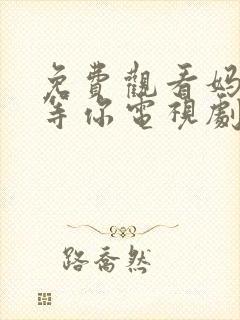 免費觀看媽
等你電視劇
路喬然